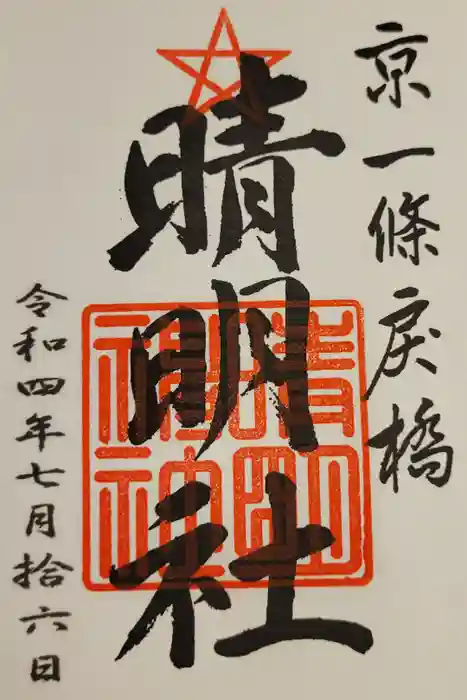 京一條戻橋
晴明社
晴明神社
令和四年七月拾六日